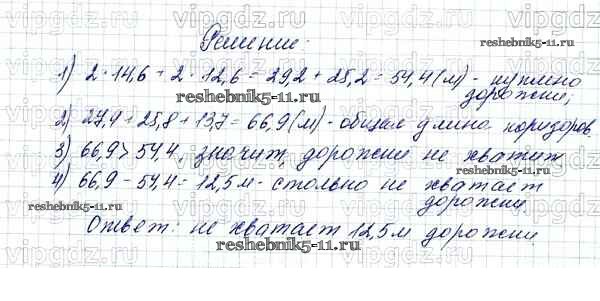 Решение.
1) 2 · 14,6 + 2 · 12,6 = 29,2 + 25,2 = 54,4 (м) -
дорожки;
2) 27,4 + 25,8 + 13,7 = 66,9 (м) - общая длина коридоров
3) 66,9 > 54,4, значит, дорожки не хватит
4) 66,9 - 54,4 = 12,5 м - столько не хватает
дорожки
Ответ: не хватает 12,5 м дорожки
vipgdz
reshebnik5-11.ru
reshebnik5-11.ru
reshebnik5-11.ru
reshebnik5-11.ru
reshebnik5-11.ru